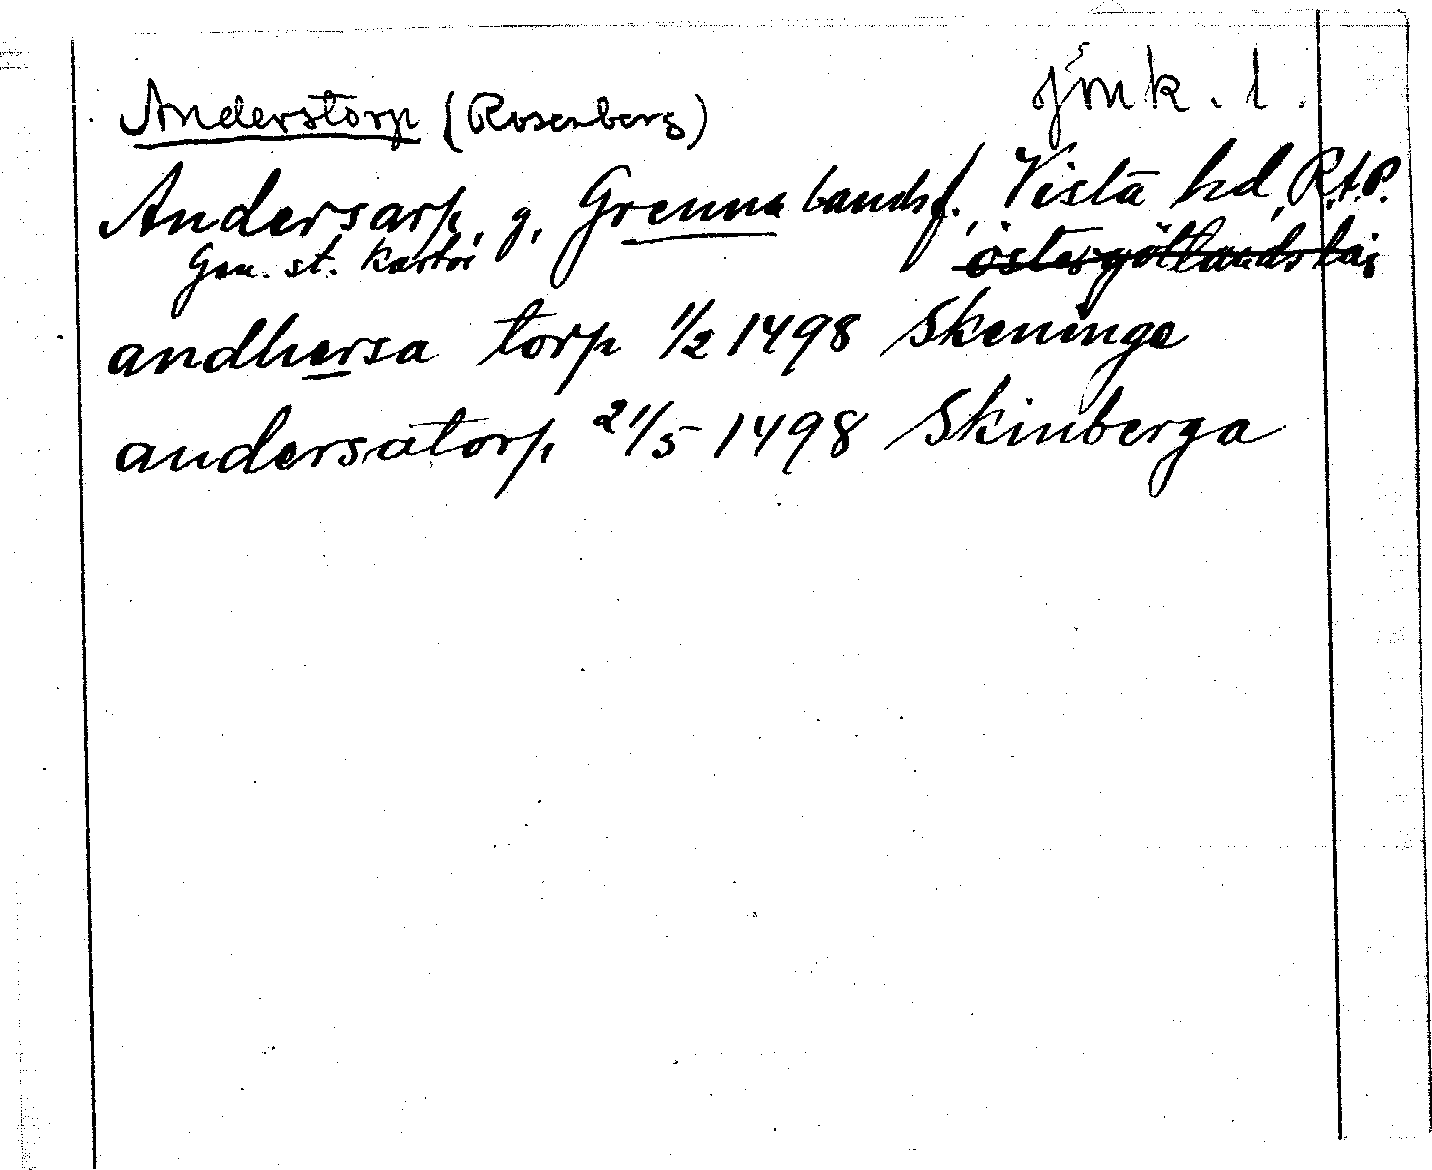 Jmk. l.
Anderstorp (Rosenberg)
Andersarp, g, Grenna landsf. Vista hd, R.A.P.
Gen. st. Kartor östergötlands län
andhersa torp 1/2 1498 Skeninge
andersatorp 21/5 1498 Skinberga